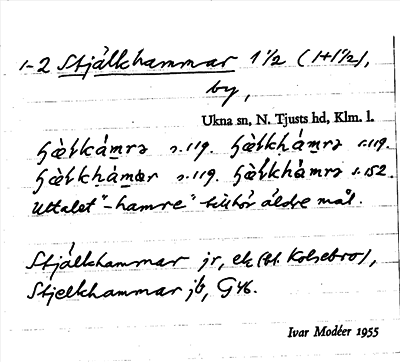 1-2 Stjälkhammar 1 ½ (1+1½),
by,
Ukna sn, N. Tjusts hd, Klm. l.
s. 119. s. 119.
s. 119. s. 152.
Uttalet "-hamre" tillhör äldre mål.
Stjälkhammar jr, ek (bl. Kolsebro),
Stjelkhammar jb, G 46.
Ivar Modéer 1955